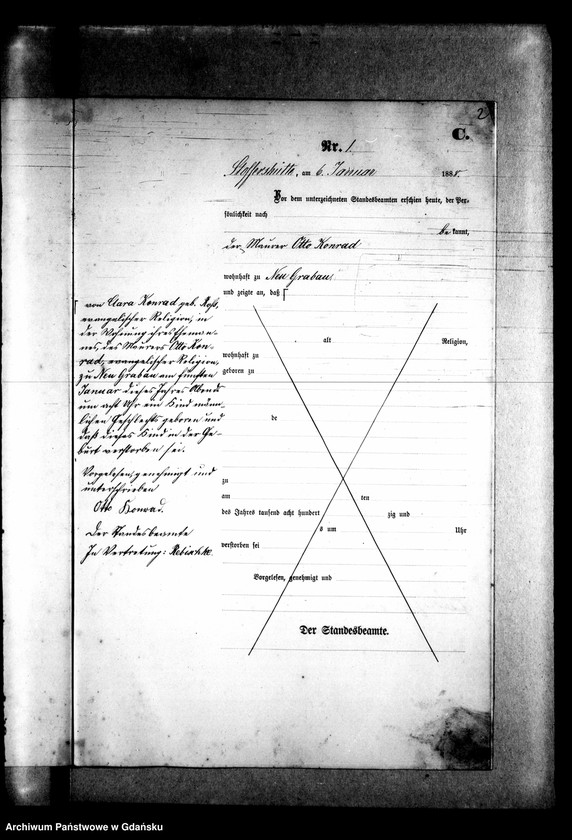 2
C.
Nr. 1.
Stoffershütte, am 6. Januar 188
Vor dem unterzeichneten Standesbeamten erschien heute, der Per-
sönlichkeit nach
be kannt,
der Maurer Otto Konrad
wohnhaft zu Neu Grabau
und zeigte an, daß
von Clara Konrad geb.
evangelischer Religion, in
der Wohnung ihres Eheman-
nes des Maurers Otto Kon-
rad, evangelischer Religion,
zu Neu Grabau am fünften
Januar dieses Jahres Abends
um acht Uhr ein Kind männ-
lichen Geschlechts geboren und
daß dieses Kind in der Ge-
burt verstorben sei.
Vorgelesen, genehmigt und
unterschrieben
Otto Konrad.
Der Standesbeamte
In Vertretung:
alt Religion,
wohnhaft zu
geboren zu
de
zu
am ten
des Jahres tausend acht hundert zig und
s um Uhr
verstorben sei
Vorgelesen, genehmigt und
Der Standesbeamte.
Archiwum Państwowe w Gdańsku